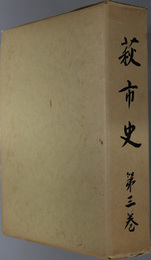 萩市史
第三巻